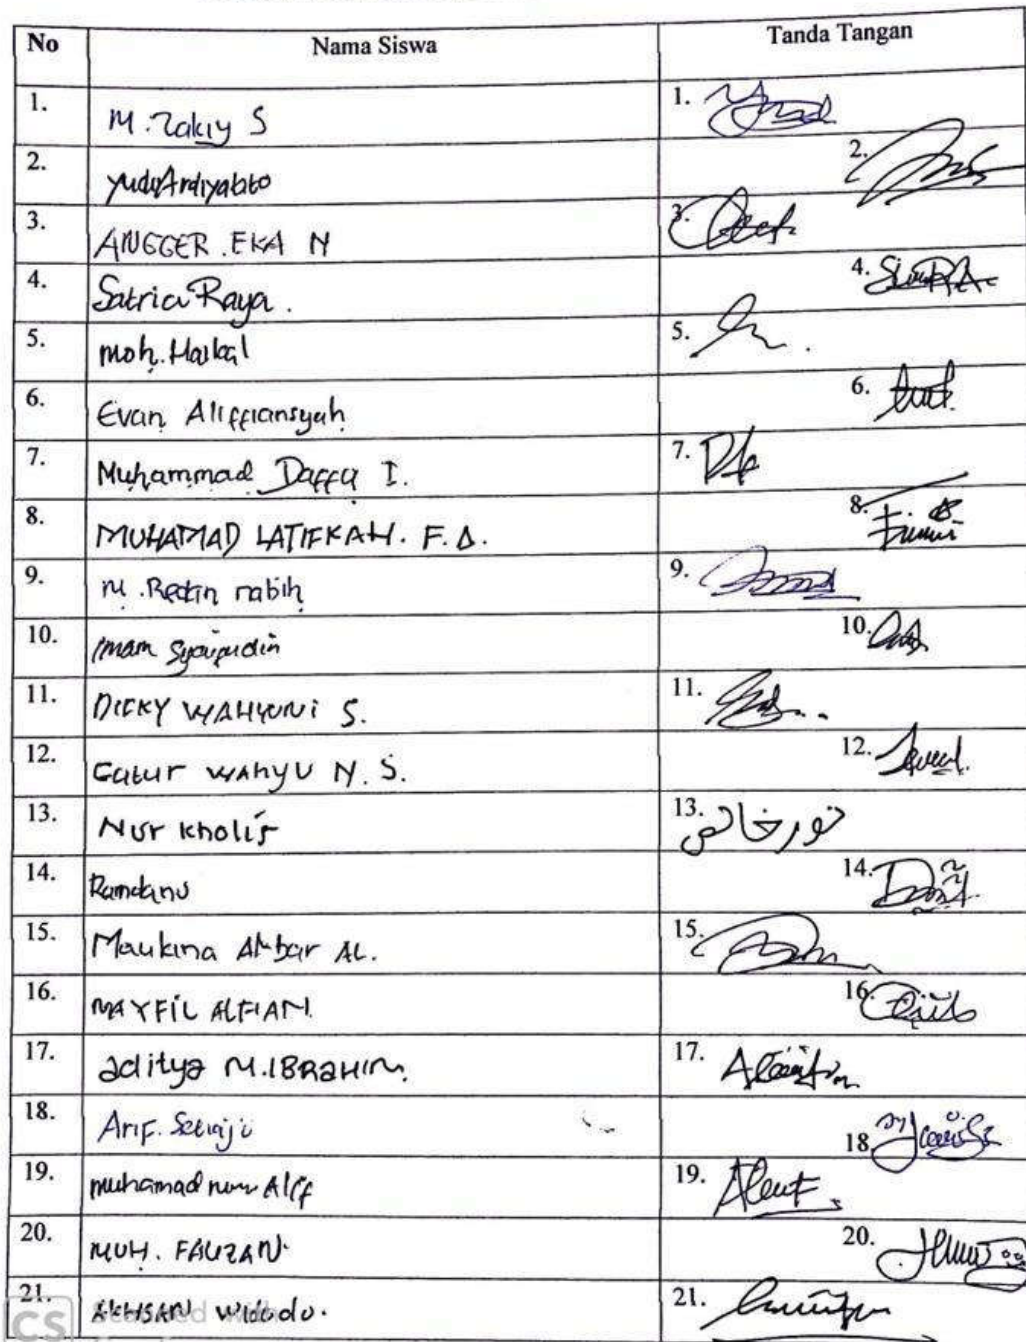 No Nama Siswa Tanda Tangan
1. M. Zakiy S 1.
2. Yudi Ardiyanto 2.
3. ANGGER. EKA N 3.
4. Satria Raya. 4.
5. Moh. Haikal 5.
6. Evan Aliffiansyah 6.
7. Muhammad Daffa I. 7.
8. MUHAMAD LATIFKAH. F. A. 8.
9. M. nabih 9.
10. Imam 10.
11. DICKY WAHYUNI S. 11.
12. Catur WAHYU N. S. 12.
13. Nur kholis 13. نور خالص
14. 14.
15. Maulana Akbar AL. 15.
16. MAYFIL ALFIAN 16.
17. aditya M. IBRAHIM. 17.
18. Arif. Setiaji 18.
19. muhamad nur Alif 19.
20. MUH. FAUZAN. 20.
21. AKHSAN widodo. 21.
CS Scanned with